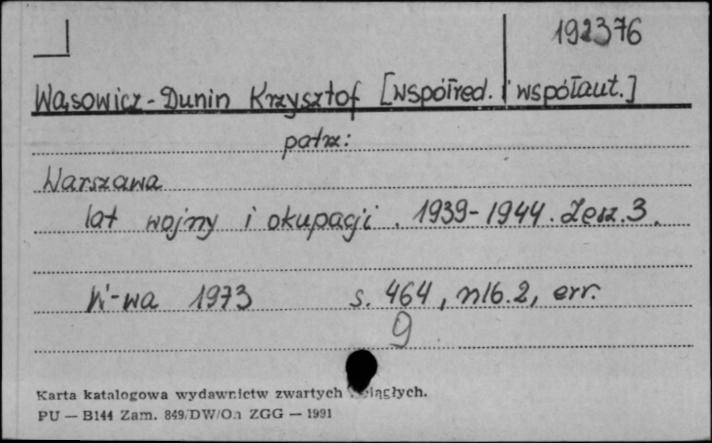 192376
Wąsowicz-Dunin Krzysztof [współred. i współaut.]
patrz:
Warszawa
lat wojny i okupacji. 1939-1944. Zesz. 3.
W-wa 1973 s. 464, nlb. 2, err.
9
Karta katalogowa wydawnictw zwartych i ciągłych.
PU — B144 Zam. 849/DW/O.1 ZGG — 1991